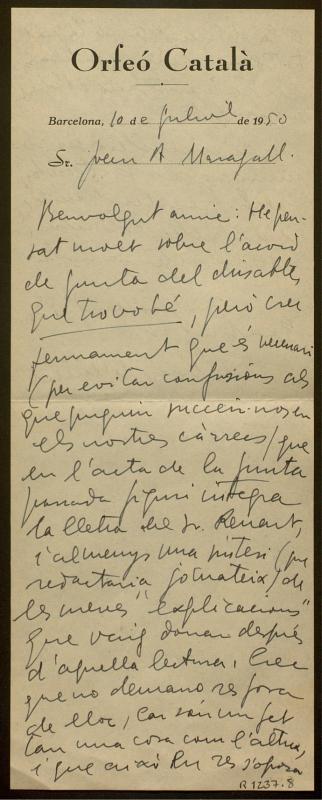 Orfeó Català
Barcelona, 10 de juliol de 1950
Sr. Joan A Maragall.
Benvolgut amic: He pen-
sat molt sobre l'acord
de junta del dissabte,
que trovo bé, però crec
fermament que és necessari
(per evitar confusions als
que puguin succeir-nos en
els nostres càrrecs) que
en l'acta de la junta
passada figuri íntegra
la lletra del Sr. Renart,
i almenys una síntesi (que
redactaria jo mateix) de
les meves "explicacions"
que vaig donar després
d'aquella lectura. Crec
que no demano res fora
de lloc, car són un fet
tan una cosa com l'altra,
i que això res s'oposa
R 1237.8